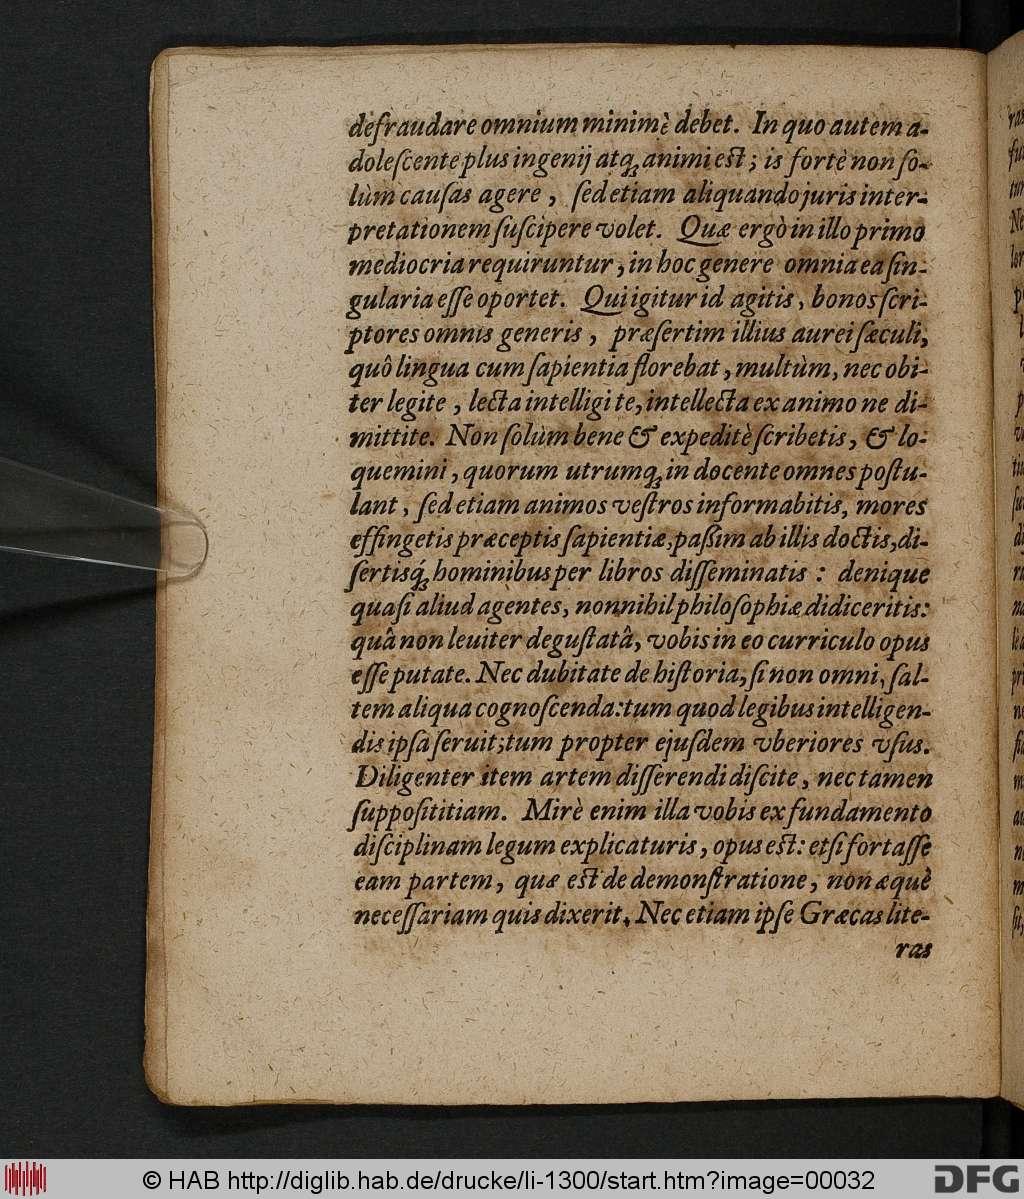 defraudare omnium minimè debet. In quo autem a-
doleſcente plus ingenij atq́ animi eſt; is fortè non ſo-
lùm cauſas agere, ſed etiam aliquando juris inter-
pretationem ſuſcipere volet. Quæ ergò in illo primo
mediocria requiruntur, in hoc genere omnia ea ſin-
gularia eſſe oportet. Qui igitur id agitis, bonos ſcri-
ptores omnis generis, præſertim illius aurei ſæculi,
quô lingua cum ſapientia florebat, multùm, nec obi-
ter legite, lecta intelligite, intellecta ex animo ne di-
mittite. Non ſolùm bene & expeditè ſcribetis, & lo-
quemini, quorum utrumq́ in docente omnes poſtu-
lant, ſed etiam animos veſtros informabitis, mores
effingetis præceptis ſapientiæ, paßim ab illis doctis, di-
ſertisq́ hominibus per libros diſſeminatis: denique
quaſi aliud agentes, nonnihil philoſophiæ didiceritis:
quâ non leuiter deguſtatâ, vobis in eo curriculo opus
eſſe putate. Nec dubitate de hiſtoria, ſi non omni, ſal-
tem aliqua cognoſcenda: tum quod legibus intelligen-
dis ipſa ſeruit; tum propter ejuſdem vberiores vſus.
Diligenter item artem diſſerendi diſcite, nec tamen
ſuppoſititiam. Mirè enim illa vobis ex fundamento
diſciplinam legum explicaturis, opus eſt: etſi fortaſſe
eam partem, quæ eſt de demonſtratione, non æquè
neceſſariam quis dixerit. Nec etiam ipſe Græcas lite-
ras
© HAB http://diglib.hab.de/drucke/li-1300/start.htm?image=00032
DFG